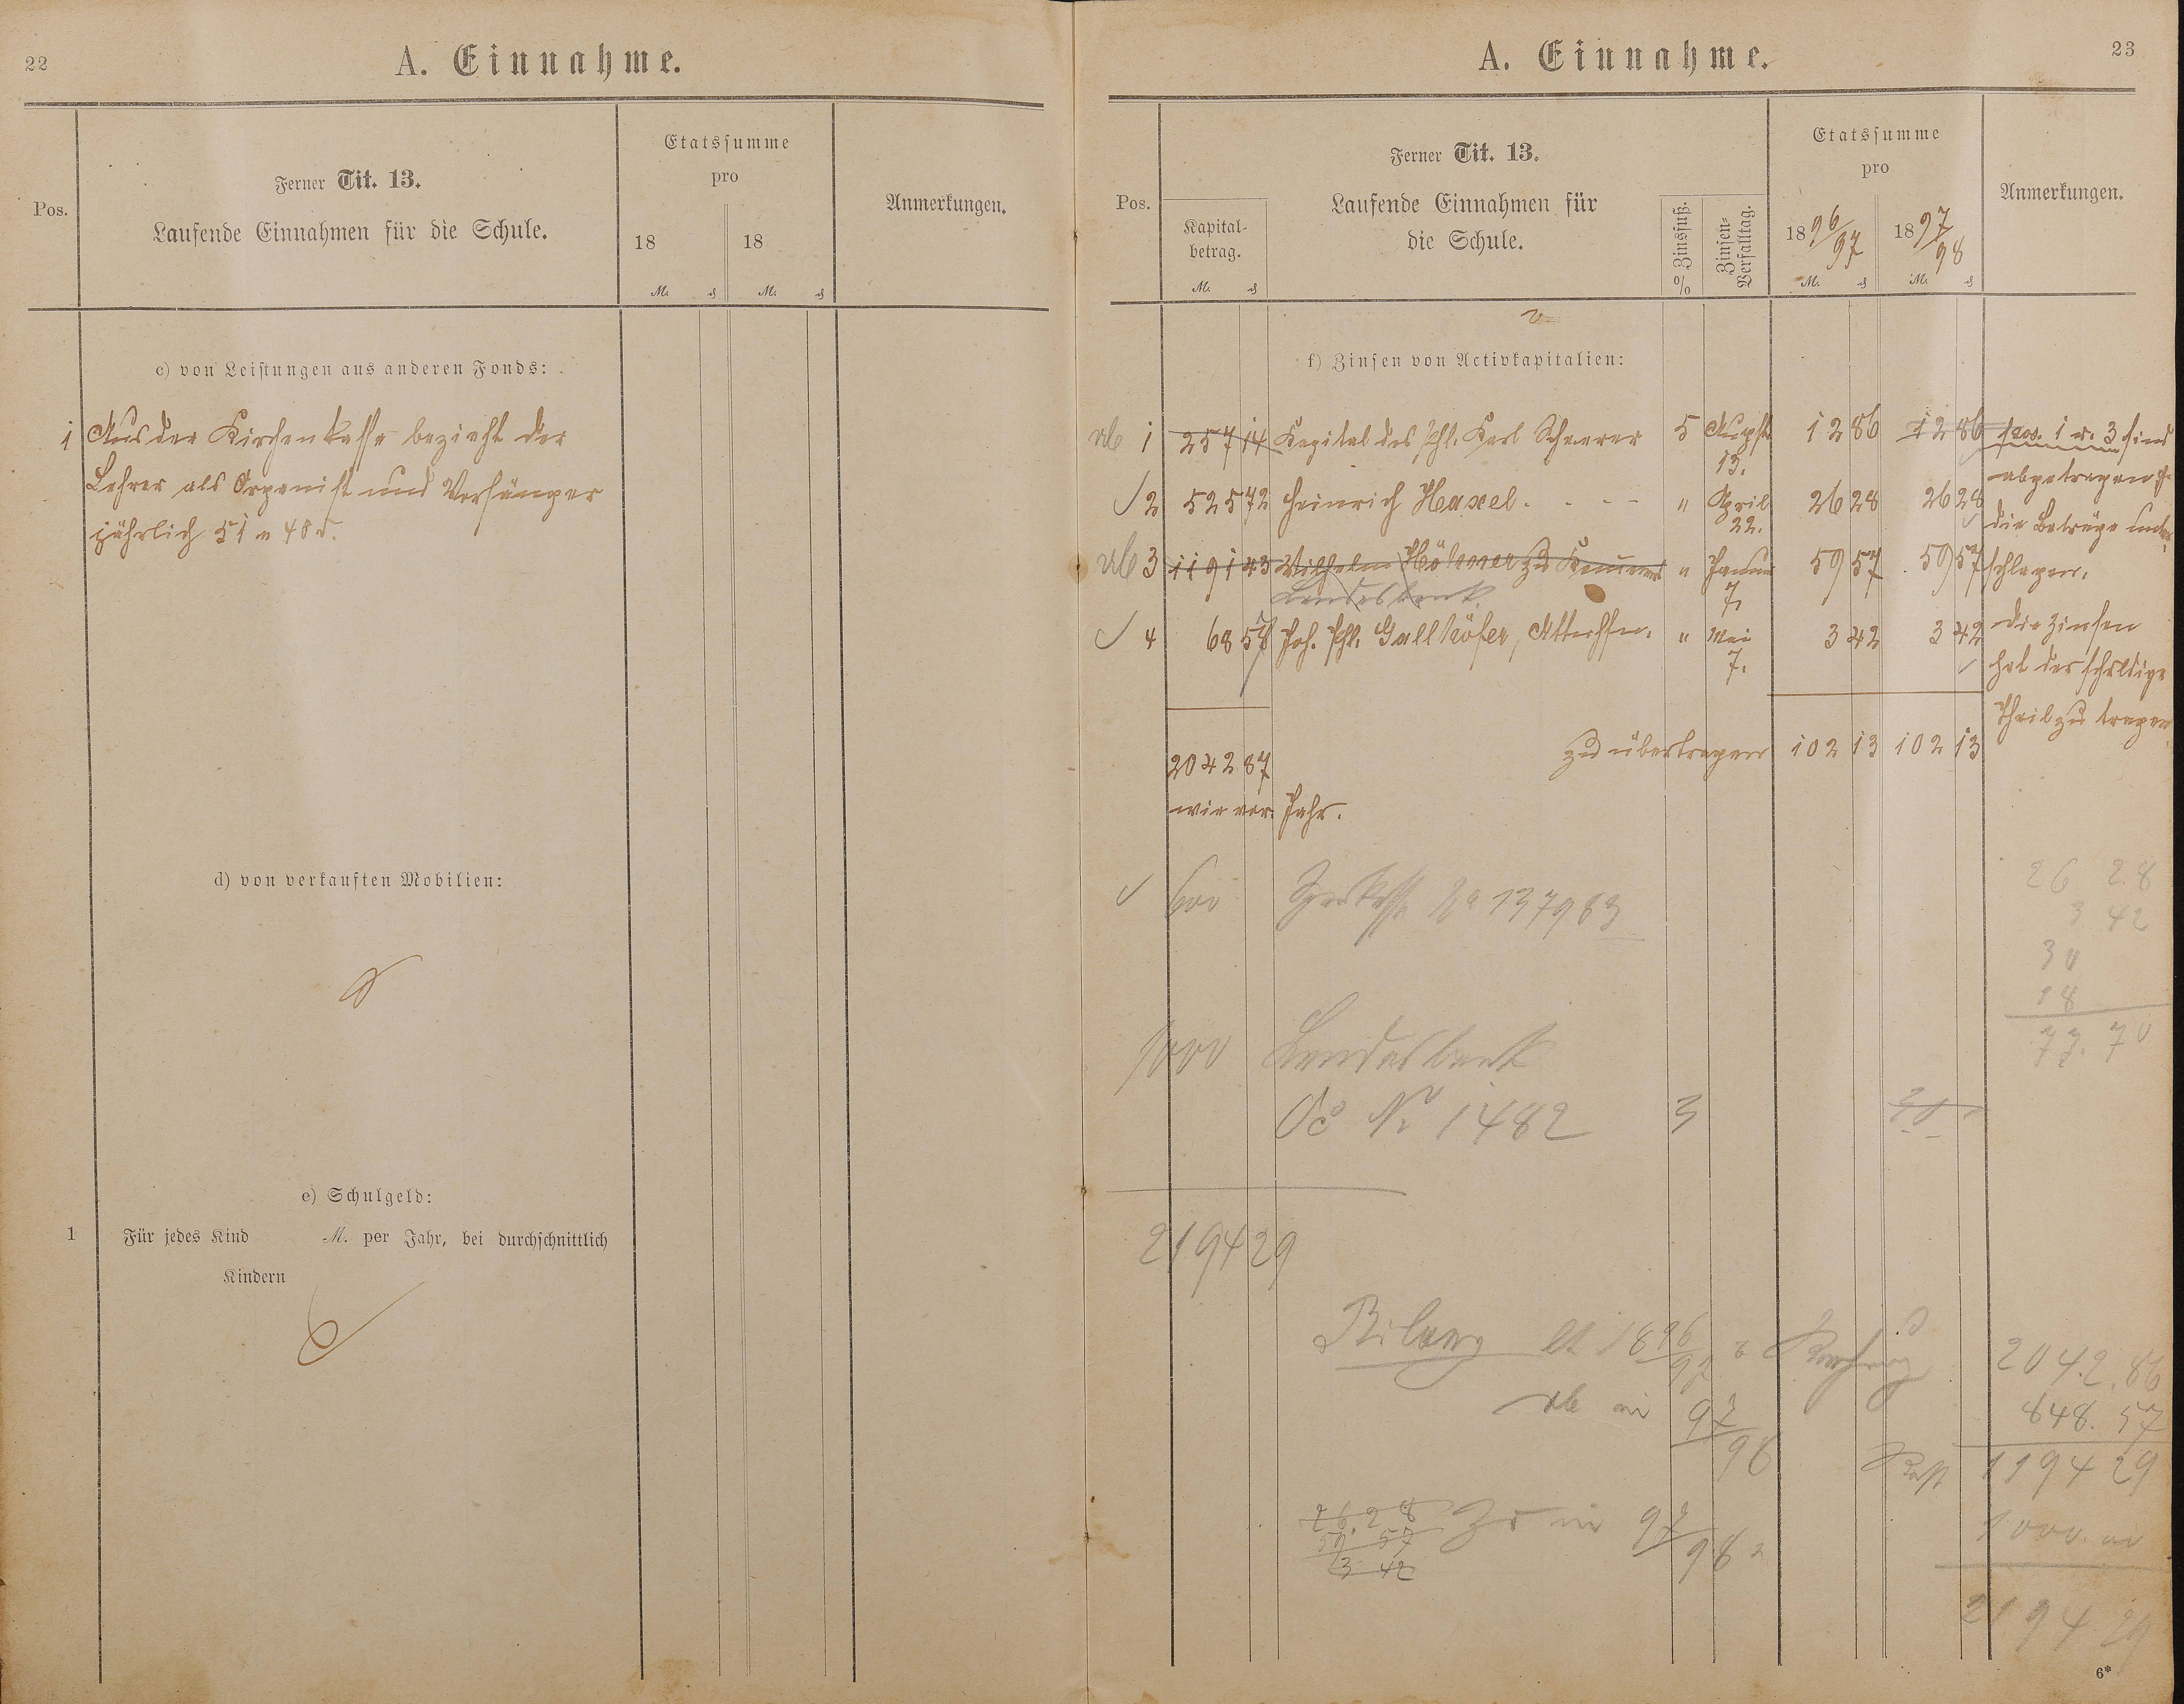 22
A. Einnahme.
Pos.
Ferner Tit. 13.
Laufende Einnahmen für die Schule.
Etatssumme
pro
18 18
M. ₰ M. ₰
Anmerkungen.
c) von Leistungen aus anderen Fonds:
1 Aus der Kirchenkasse bezieht der
Lehrer als Organist und Vorsänger
jährlich 51 M 40 ₰.
d) von verkauften Mobilien:
e) Schulgeld:
1 Für jedes Kind M. per Jahr, bei durchschnittlich
Kindern
A. Einnahme.
23
Pos.
Kapital-
betrag.
M. ₰
Ferner Tit. 13.
Laufende Einnahmen für
die Schule.
% Zinsfuß.
Zinsen-
Verfalltag.
Etatssumme
pro
1896/97 1897/98
M. ₰ M. ₰
Anmerkungen.
f) Zinsen von Activkapitalien:
ab 1 257 14 Kapital des Phl. Karl Scheerer 5 August 12 86 12 86 Pos. 1 u. 3 sind
15. abgetragen &
2 525 72 Heinrich Hexel . - - - " April 26 28 26 28
22. die Beträge unter-
ab 3 1191 43 Wilhelm Höhner zu " Januar 59 57 59 57 schlagen.
Landesbank 7.
4 68 57 Joh. Phl. Gallhöfer, " Mai 3 42 3 42 Die Zinsen
7. hat der schuldige
Theil zu tragen.
zu übertragen 102 13 102 13
2042 87
wie vor. Jahr.
600 Sparkasse No 137983
26 28
3 42
30
18
77. 70
1000 Landesbank
Oc No 1482 3 30
2194 29
1896/97 2042.86
ab in 97/98 848.57
Rest 1194 29
26.28
59 57
3 42
Zu in 97/98
1000.00
2194 29
6*